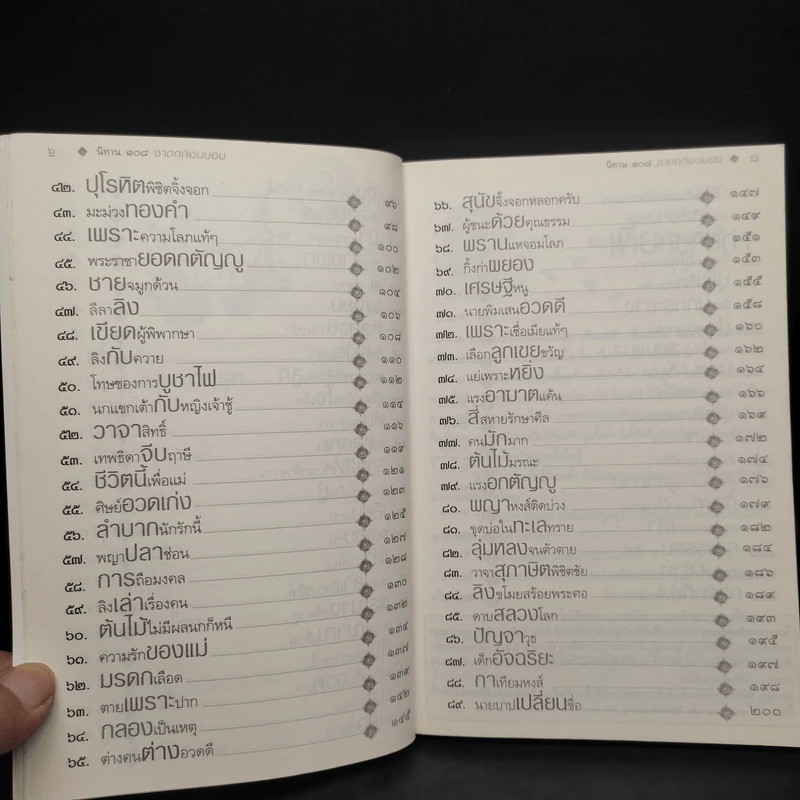 ๖ ◆ นิทาน ๑๐๘ ชาดกก่อนนอน
๔๒. ปุโรหิตพิชิตจิ้งจอก ๙๖
๔๓. มะม่วงทองคำ ๙๘
๔๔. เพราะความโลภแท้ๆ ๑๐๐
๔๕. พระราชายอดกตัญญู ๑๐๒
๔๖. ชายจมูกด้วน ๑๐๔
๔๗. ลีลาลิง ๑๐๖
๔๘. เขียดผู้พิพากษา ๑๐๘
๔๙. ลิงกับควาย ๑๑๐
๕๐. โทษของการบูชาไฟ ๑๑๒
๕๑. นกแขกเต้ากับหญิงเจ้าชู้ ๑๑๔
๕๒. วาจาสิทธิ์ ๑๑๖
๕๓. เทพธิดาจีบฤาษี ๑๑๙
๕๔. ชีวิตนี้เพื่อแม่ ๑๒๑
๕๕. ศิษย์อวดเก่ง ๑๒๓
๕๖. ลำบากนักรักนี้ ๑๒๕
๕๗. พญาปลาช่อน ๑๒๗
๕๘. การถือมงคล ๑๒๘
๕๙. ลิงเล่าเรื่องคน ๑๓๐
๖๐. ต้นไม้ไม่มีผลนกก็หนี ๑๓๒
๖๑. ความรักของแม่ ๑๓๔
๖๒. มรดกเลือด ๑๓๗
๖๓. ตายเพราะปาก ๑๓๙
๖๔. กลองเป็นเหตุ ๑๔๒
๖๕. ต่างคนต่างอวดดี ๑๔๕
นิทาน ๑๐๘ ชาดกก่อนนอน ◆
๖๖. สุนัขจิ้งจอกหลอกครับ ๑๔๗
๖๗. ผู้ชนะด้วยคุณธรรม ๑๔๙
๖๘. พรานแหจอมโลภ ๑๕๑
๖๙. กิ้งก่าผยอง ๑๕๓
๗๐. เศรษฐีหนู ๑๕๕
๗๑. นายพิมเสนอวดดี ๑๕๘
๗๒. เพราะเชื่อเมียแท้ๆ ๑๖๐
๗๓. เลือกลูกเขยขวัญ ๑๖๒
๗๔. แย่เพราะหยิ่ง ๑๖๔
๗๕. แรงอาฆาตแค้น ๑๖๖
๗๖. สี่สหายรักษาศีล ๑๖๙
๗๗. คนมักมาก ๑๗๒
๗๘. ต้นไม้มรณะ ๑๗๔
๗๙. แรงอกตัญญู ๑๗๖
๘๐. พญาหงส์ติดบ่วง ๑๗๙
๘๑. ขุดบ่อในทะเลทราย ๑๘๒
๘๒. ลุ่มหลงจนตัวตาย ๑๘๔
๘๓. วาจาสุภาษิตพิชิตชัย ๑๘๖
๘๔. ลิงขโมยสร้อยพระศอ ๑๘๙
๘๕. ดาบสลวงโลก ๑๙๓
๘๖. ปัญจาวุธ ๑๙๕
๘๗. เด็กอัจฉริยะ ๑๙๗
๘๘. กาเทียมหงส์ ๑๙๘
๘๙. นายบาปเปลี่ยนชื่อ ๒๐๐